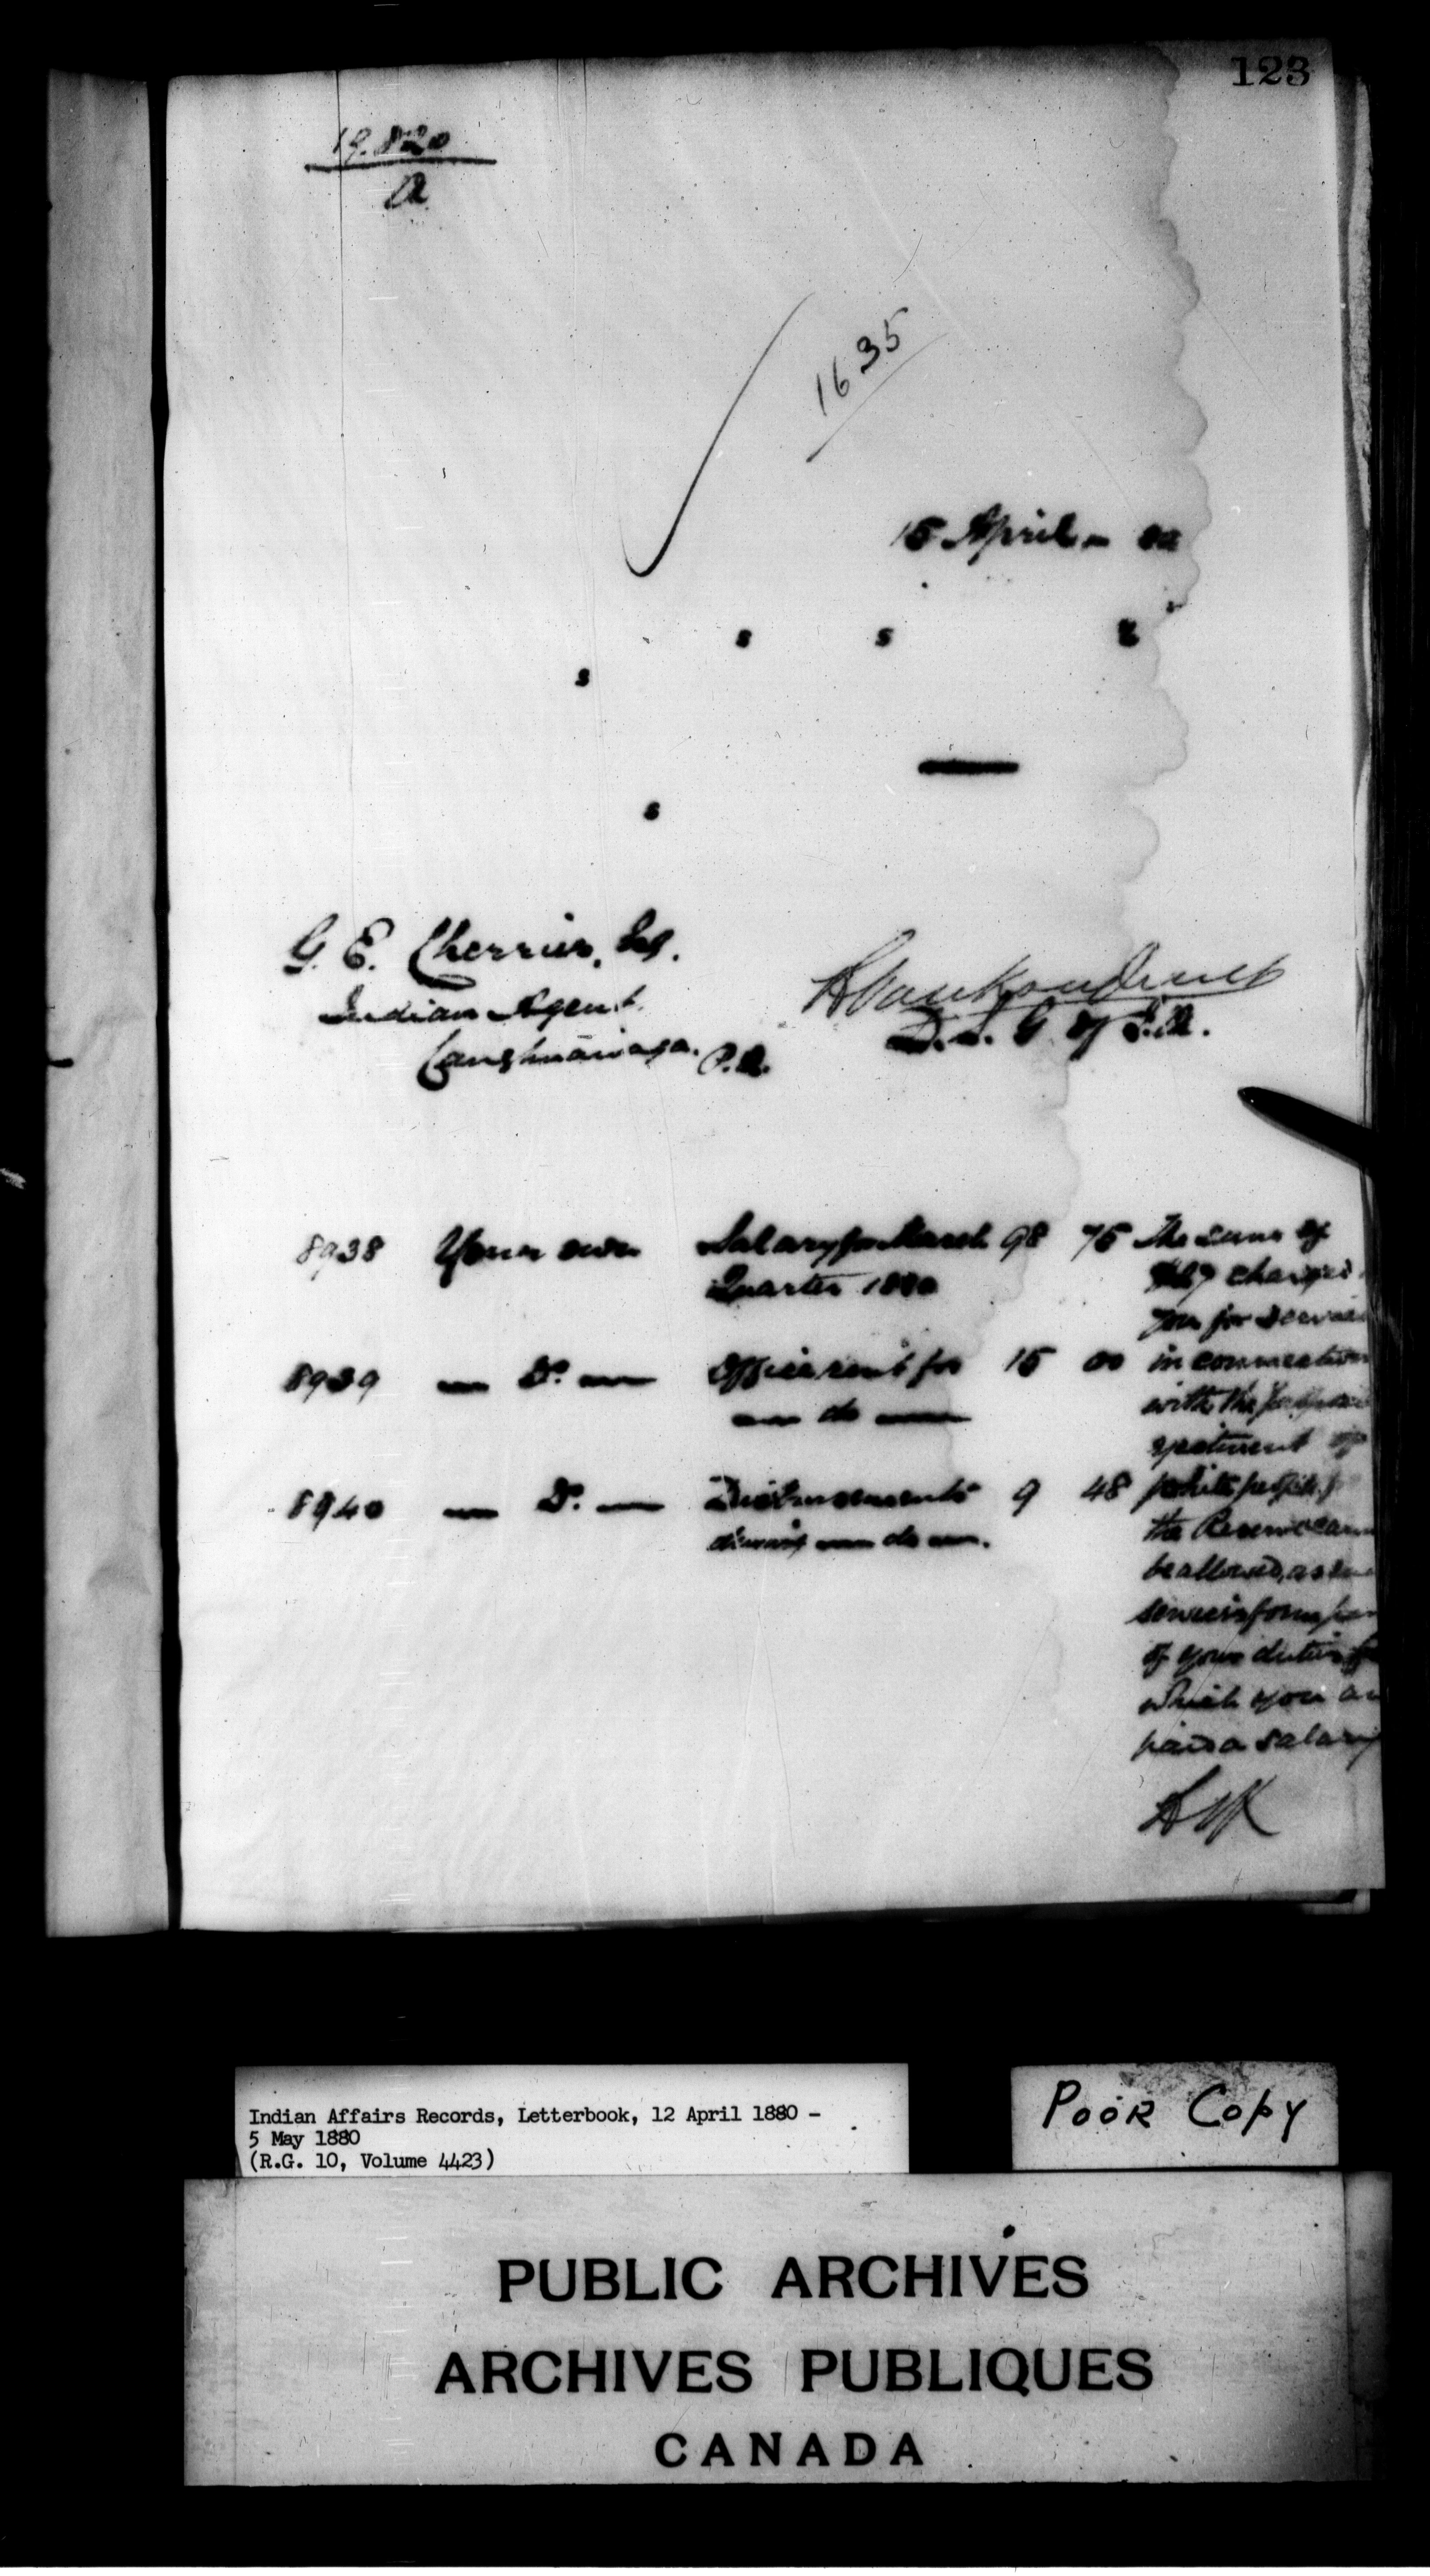 123
19.820
a
1635
15 April - 80
s s s
s
s
G. E. Cherrier, Esq.
Indian Agent
Caughnawaga. P.Q.
L Vankoughnet
D. S. G. of I.A.
8938 Your own Salary for March 98 75 The sum of
Quarter 1880
charged
you for services
8939 — Do. — Office rent for 15 00 in connection
— do — with the
of
8940 — Do. — Disbursements 9 48 white people
during — do —. the Reserve
be allowed, as
services form
of your duties
which you
paid a salary
LVK
Indian Affairs Records, Letterbook, 12 April 1880 -
5 May 1880
(R.G. 10, Volume 4423)
Poor Copy
PUBLIC ARCHIVES
ARCHIVES PUBLIQUES
CANADA